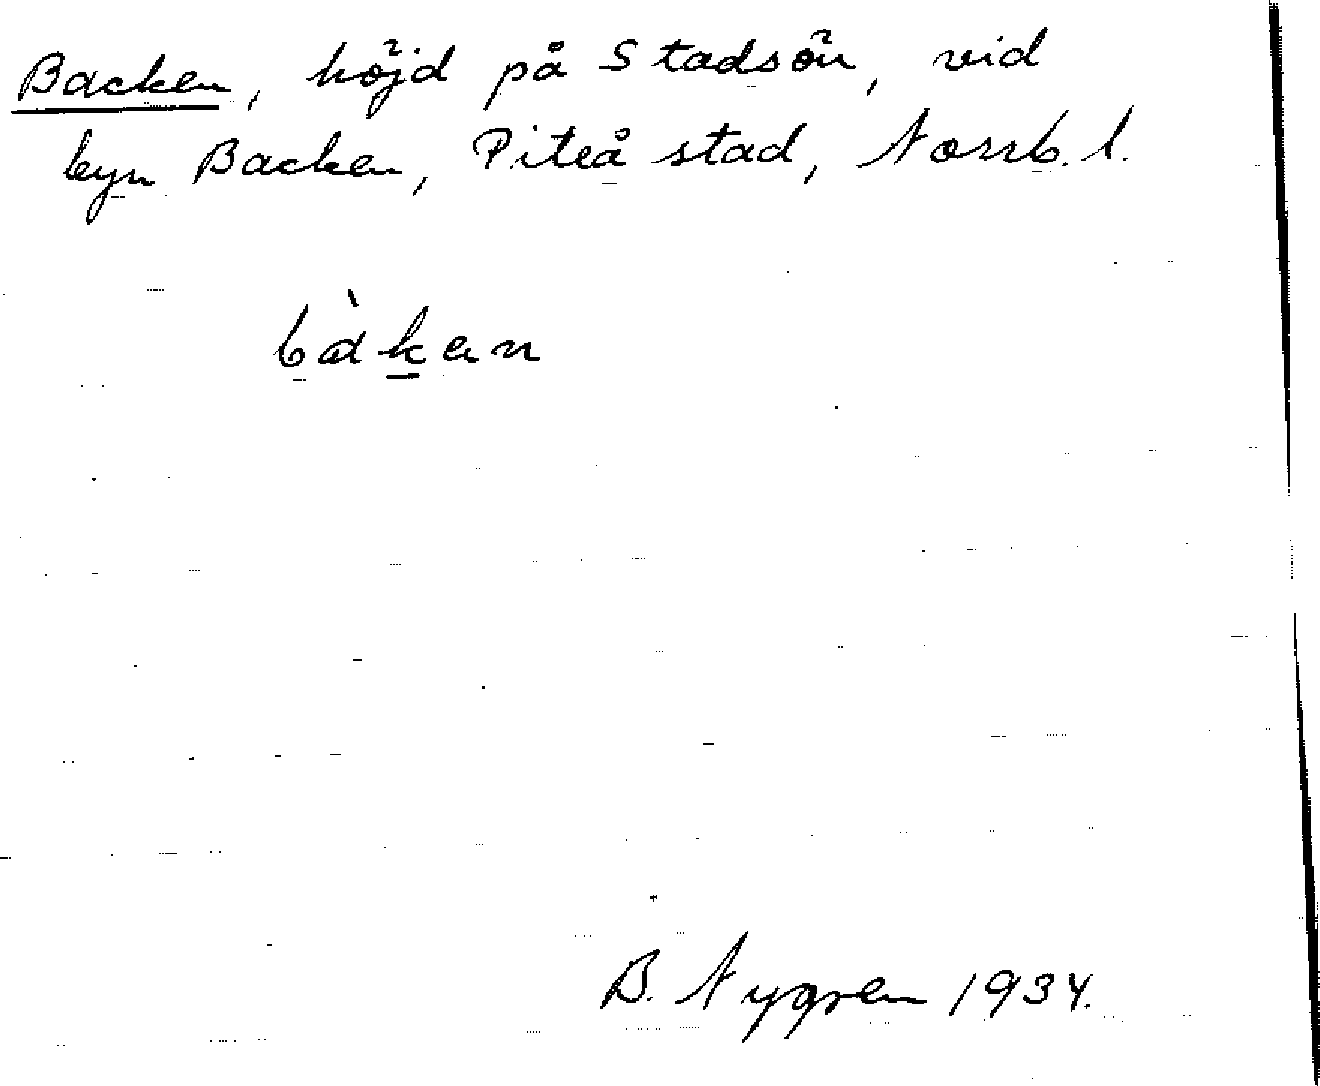 Backen, höjd på Stadsön, vid
byn Backen, Piteå stad, Norrb. l.
bàkan
B. Nygren 1934.